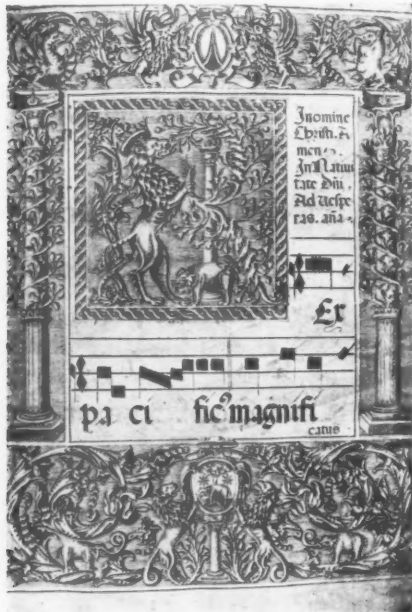 In nomine
Christi. A
men.
In Nativi
tate Dñi.
Ad vespe
ras. aña.
Ex
pa ci fic⁹ magnifi
catus